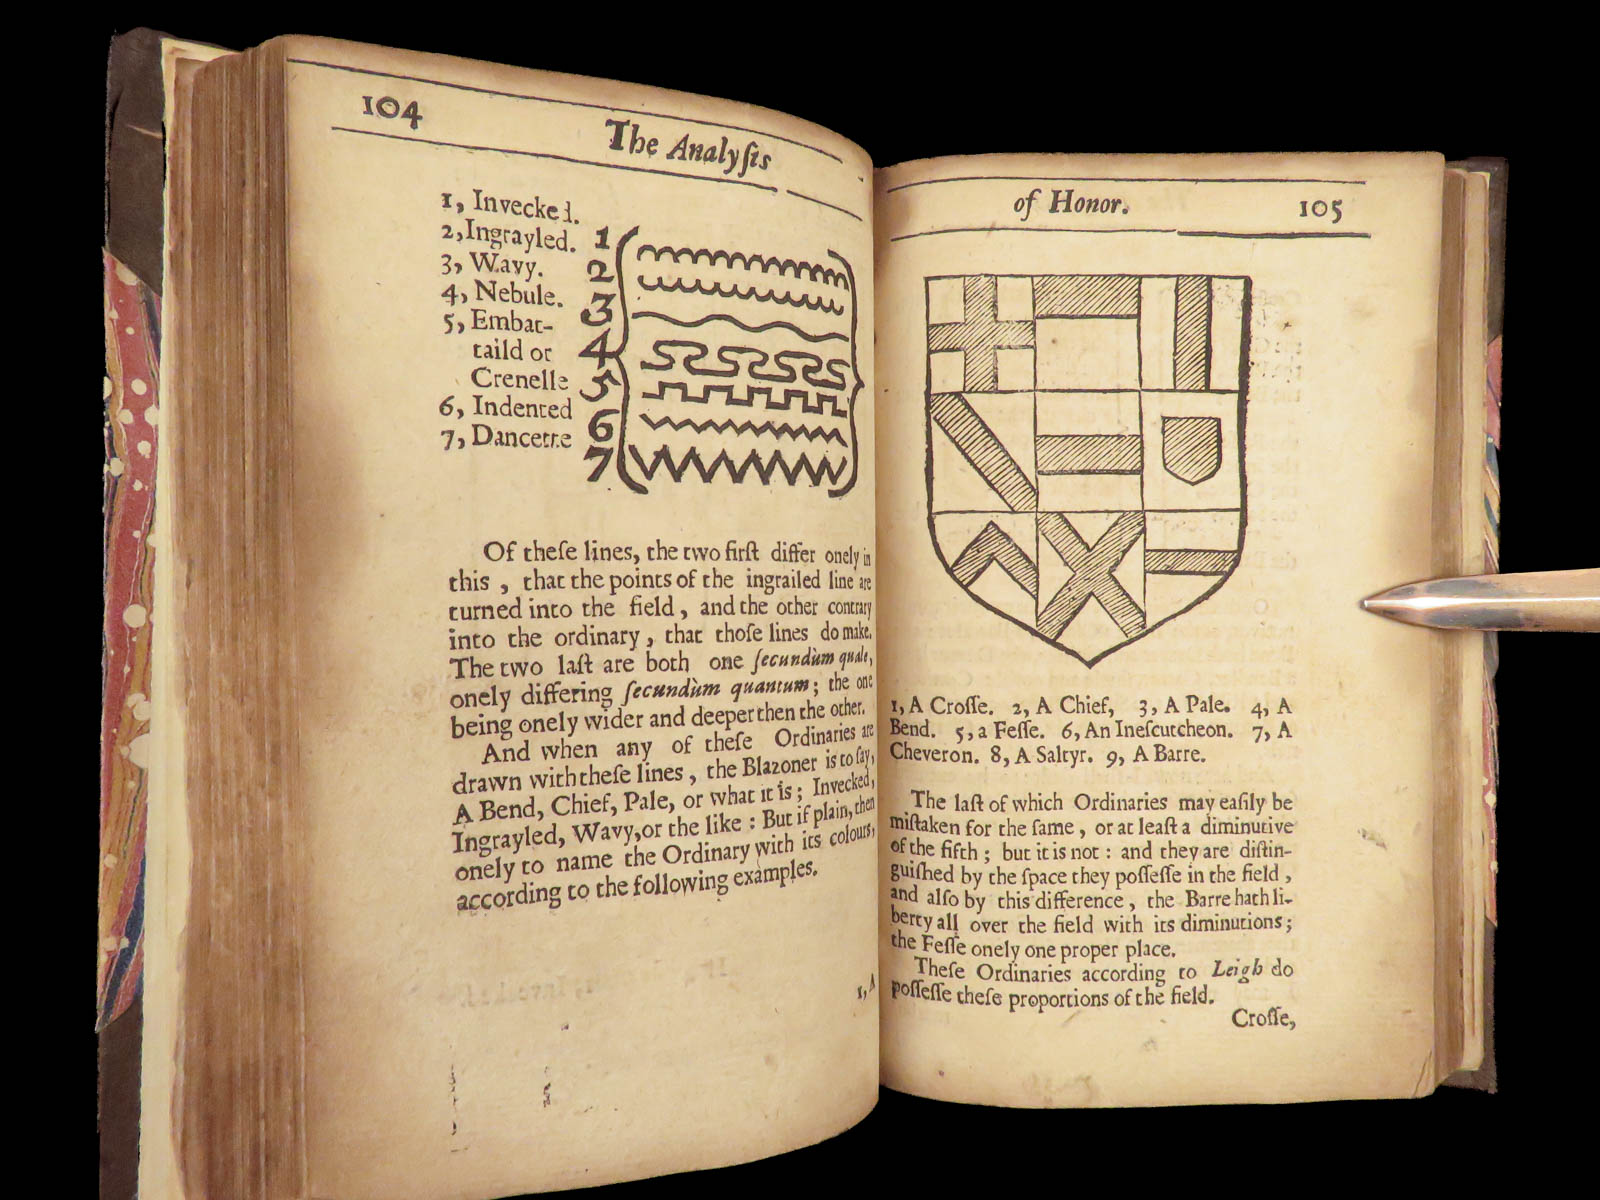 104
The Analyſis
1, Invecked.
2,Ingrayled.
3, Wavy.
4, Nebule.
5, Embat-
taild or
Crenelle
6, Indented
7, Dancette
1
2
3
4
5
6
7
Of theſe lines, the two firſt differ onely in
this , that the points of the ingrailed line are
turned into the field , and the other contrary
into the ordinary , that thoſe lines do make.
The two laſt are both one ſecundùm quale,
onely differing ſecundùm quantum ; the one
being onely wider and deeper then the other.
And when any of theſe Ordinaries are
drawn with theſe lines , the Blazoner is to ſay,
A Bend, Chief, Pale, or what it is ; Invecked,
Ingrayled, Wavy,or the like : But if plain, then
onely to name the Ordinary with its colours,
according to the following examples.
1, A
of Honor.
105
1, A Croſſe. 2, A Chief, 3, A Pale. 4, A
Bend. 5, a Feſſe. 6, An Ineſcutcheon. 7, A
Cheveron. 8, A Saltyr. 9, A Barre.
The laſt of which Ordinaries may eaſily be
miſtaken for the ſame , or at leaſt a diminutive
of the fifth ; but it is not : and they are diſtin-
guiſhed by the ſpace they poſſeſſe in the field ,
and alſo by this difference , the Barre hath li-
berty all over the field with its diminutions ;
the Feſſe onely one proper place.
Theſe Ordinaries according to Leigh do
poſſeſſe theſe proportions of the field.
Croſſe,